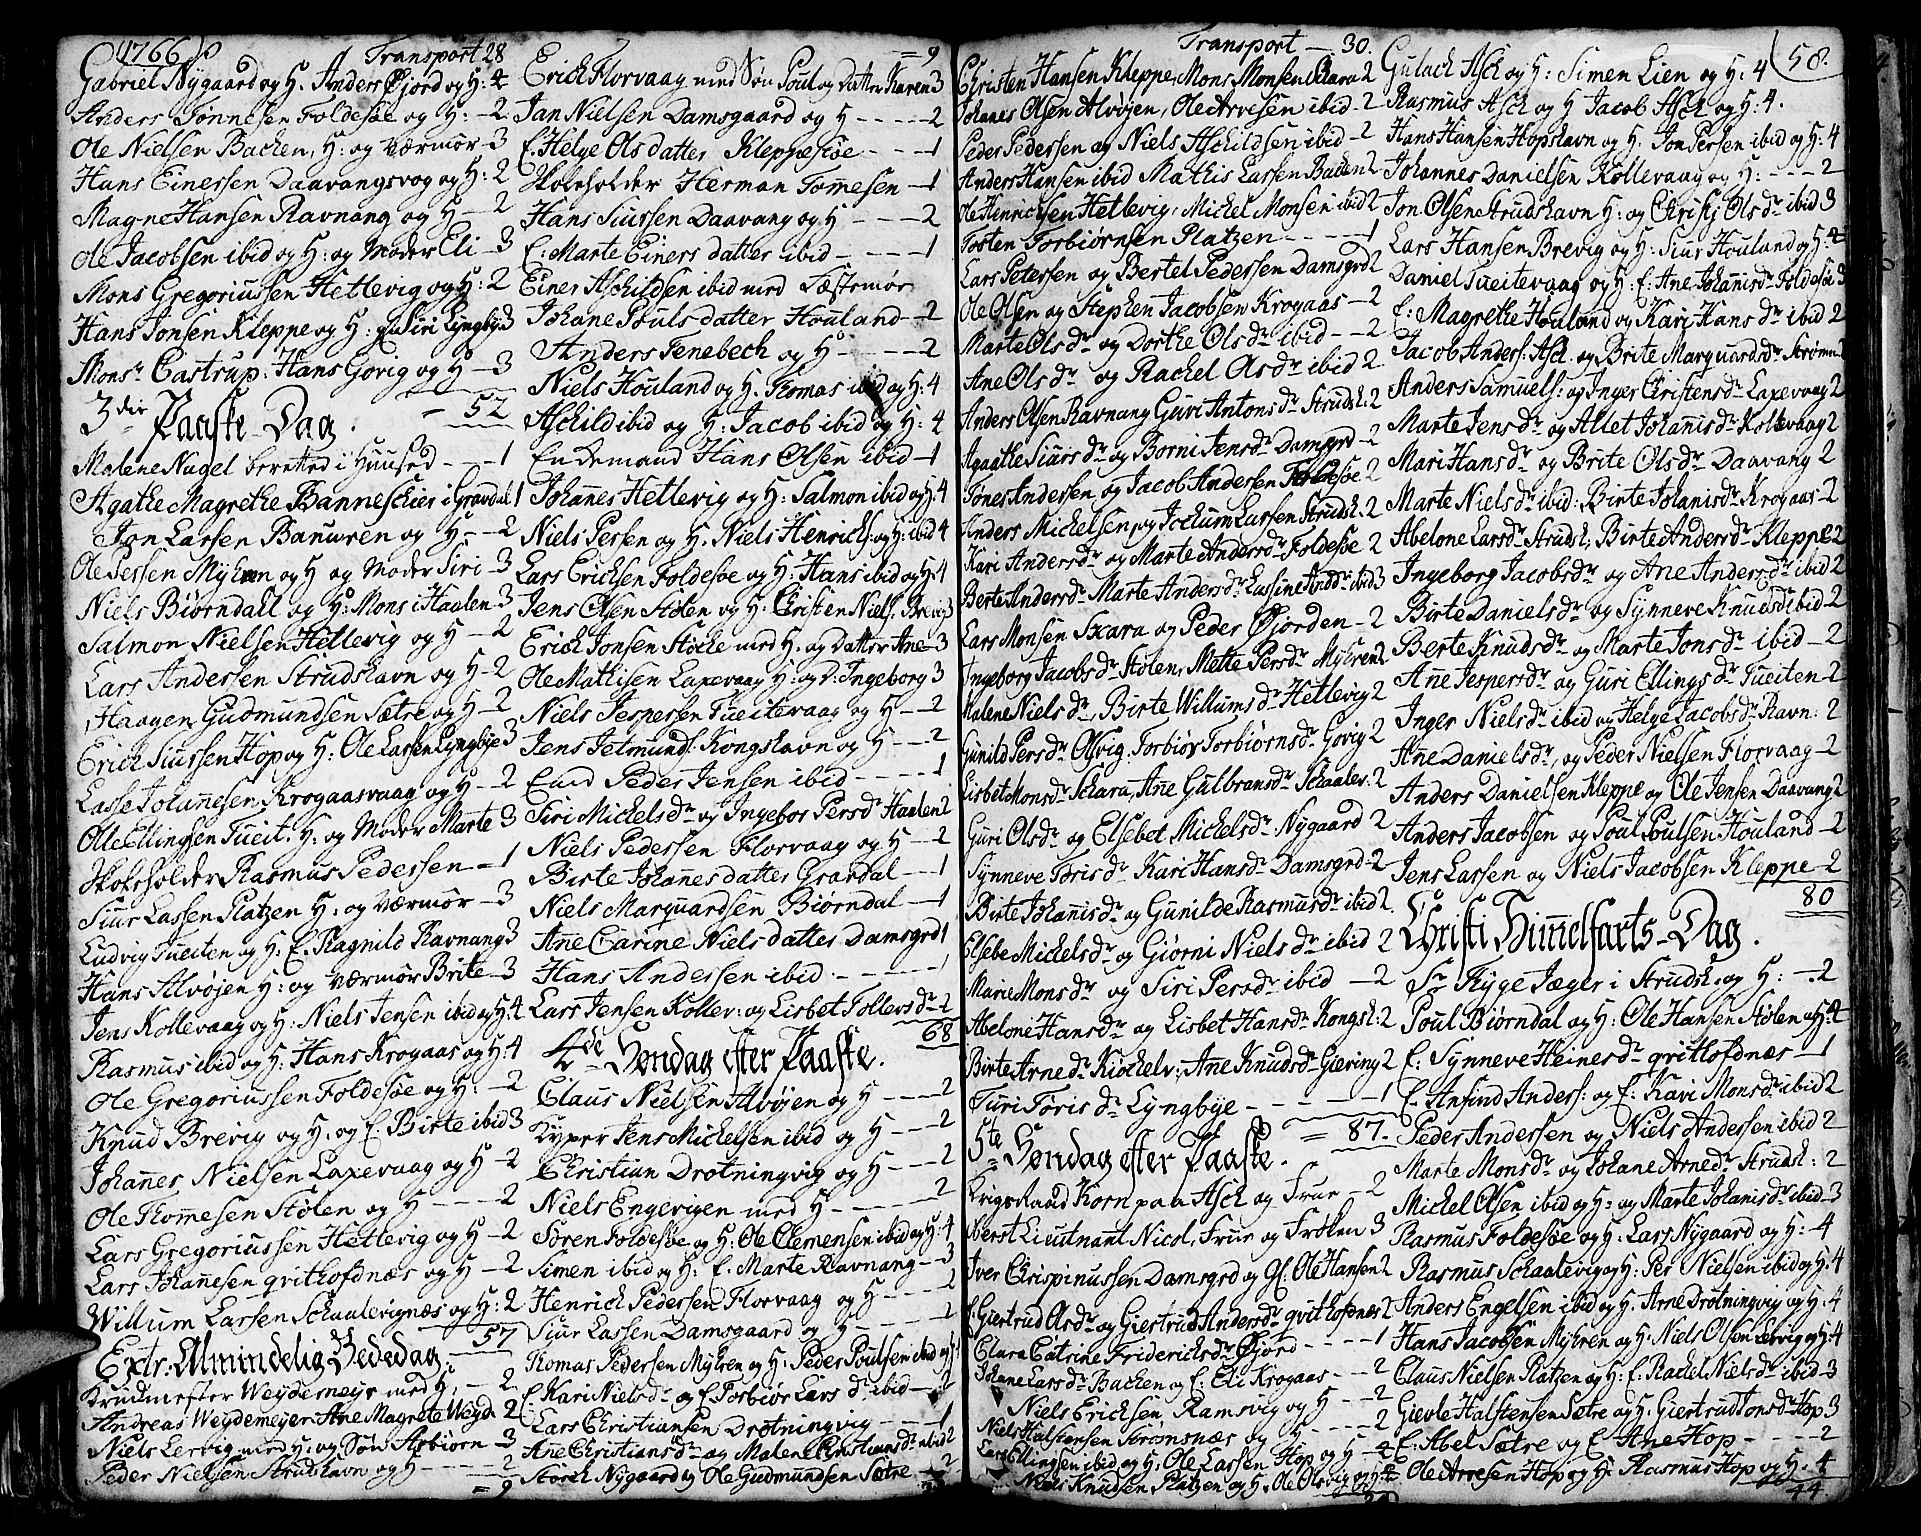 1766
Transport 28
Gabriel Nygaard og H. Anders Øjord og H: 4
Anders Tønnesen Foldesøe og H: - 2
Ole Nielsen Bachen, H: og Værmor - 3
Hans Einersen Daavangsvog og H: 2
Magne Hansen Ravnang og H - 2
Ole Jacobsen ibid og H: og Moder Eli - 3
Mons Gregoriussen Hetlevig og H: 2
Hans Jonsen Kleppe og H: Lyngbye 3
Monsr Castrup: Hans Govig og H - 3
= 52
3die Paaske-Dag.
Malene Nagel beretted i Huused - - 1
Agathe Magrethe i Gravdal 1
Jon Larsen Banuren og H: - 2
Ole Jessen Myhren og H og Moder Siri - 3
Niels Biørndall og H: Mons i Haalen - 3
Salmon Nielsen Hetlevig og H - 2
Lars Andersen Strudshavn og H - 2
Haagen Gudmundsen Sætre og H - 2
Erich Siursen Hop og H: Ole Larsen Lyngbye 3
Lasse Johannesen Krogaasvaag og H - 2
Ole Ellingsen Tueit. H: og Moder Marte 3
Skoleholder Rasmus Pedersen - 1
Siur Lassen Platzen H: og Værmor - 3
Ludvig Tueiten og H: E. Ragnild Ravnang 3
Hans Alvøjen H: og Værmor Brite - 3
Jens Kollevaag og H: Niels Jensen ibid og H: 4
Rasmus ibid og H: Hans Krogaas og H: 4
Ole Gregoriussen Foldesøe og H: - 2
Knud Brevig og H. og E. Birte ibid 3
Johannes Nielsen Laxevaag og H - 2
Ole Thommesen Stølen og H - - 2
Lars Gregoriussen Hetlevig og H - 2
Lars Johannesen qvithofdnæs og H - 2
Willum Larsen Schaalevignæs og H: 2
57
Extr: Almindelig Bededag.
Krudmester Weydemeyr med H. - 2
Andreas Weydemeyer Ane Magrete Weyd. 2
Niels Lervig med H: og Søn Asbiørn - 3
Peder Nielsen Strudshavn og H - - 2
= 9
= 9
Erich Florvaag med Søn Poul og Datter Karen 3
Jan Nielsen Damsgaard og H - - - - 2
E. Helge Olsdatter Kleppesøe - - - 1
Skoleholder Herman Tommesen - 1
Hans Siursen Daavang og H - - - - 2
E: Marte Einersdatter ibid - - - - 1
Einer Aschildsen ibid med Fæstemøe
Johane Poulsdatter Houland - 2
Anders Tenebech og H - - - 2
Niels Houland og H. Tomas ibid og H: 4
Aschild ibid og H: Jacob ibid og H: 4
Enckemand Hans Olsen ibid - 1
Johannes Hetlevig og H: Salmon ibid og H: 4
Niels Persen og H. Niels Henrichs: og H: ibid 4
Lars Erichsen Foldesøe og H: Hans ibid og H: 4
Jens Olsen Stølen og H: Christen Niels: Brevig 3
Erich Jonsen Støche med H. og Datter Ane - 3
Ole Mathisen Laxevaag H: og D: Ingeborg 3
Niels Jespersen Tueitevaag og H - - 2
Jens Jelmunds: Kongshavn og H - - 2
Peder Jensen ibid - - - - 1
Siri Michelsdr og Ingebor Persdr Haalen 2
Niels Pedersen Florvaag og H - - 2
Birte Johannesdatter Gravdal - - 1
Niels Marquardsen Biørndal - 1
Ane Carine Nielsdatter Damsgrd 1
Hans Andersen ibid - - - - 1
Lars Jensen Kollev: og Lisbet Tollevsdr - 2
68
4de Søndag efter Paaske.
Claus Nielsen Alvøjen og H - - - 2
Kyper Jens Michelsen ibid og H - - - 2
Christian Drotningvig og H - - - 2
Niels Engevigen med H - - - - 2
Søren Foldesøe og H: Ole Clemensen ibid og H: 4
Simen ibid og H: E. Marte Ravnang - 3
Henrich Pedersen Florvaag og H - - 2
Siur Lassen Damsgaard og H - - - 2
Thomas Pedersen Myhren og H: Peder Poulsen ibid og H: 4
E. Kari Nielsdr og E. Torbiør Larsdr ibid - 2
Lars Christiansen Drotningvig - - 1
Ane Christiansdr og Malene Christiansdr ibid 2
Størch Nygaard og Ole Gudmundsen Sætre - 2
Transport - 30.
Christen Hansen Kleppe, Mons Monsen Schara 2
Johanes Olsen Alvøjen, Ole Arvesen ibid - 2
Peder Pedersen og Niels Aschildsen ibid - 2
Anders Hansen ibid Mathis Larsen Bachen 2
Ole Henrichsen Hetlevig, Michel Monsen ibid 2
Tosten Torbiørnsen Platzen - - - - 1
Lars Petersen og Bertel Pedersen Damsgrd 2
Ole Olsen og Stephen Jacobsen Krogaas - 2
Marte Olsdr og Dorthe Olsdr ibid - - 2
Ane Olsdr og Rachel Olsdr ibid 2
Anders Olsen Ravnang Guri Antonsdr Strudsh: 2
Agathe Siursdr og Borni Jensdr Damsgrd - 2
Tønes Andersen og Jacob Andersen Foldesøe 2
Anders Michelsen og Jochum Larsen Strudsh: 2
Kari Andersdr og Marte Andersdr Foldesøe 2
Berte Andersdr Marte Andersdr Lusine Andrdr ibid 3
Lars Monsen Sxara og Peder Øjorden - 2
Ingeborg Jacobsdr Stølen, Mette Persdr Myhren 2
Malene Nielsdr, Birte Willumsdr Hetlevig 2
Gunild Persdr Olsvig, Torbior Torbiørnsdr Govig 2
Lisbet Monsdr Schara, Ane Gulbransdr Schaalev: 2
Guri Olsdr og Elsebet Michelsdr Nygaard 2
Synneve Torisdr Kari Hansdr Damsgrd - 2
Birte Johannisdr og Gunilde Rasmusdr ibid 2
Elsebe Michelsdr og Giørni Nielsdr ibid 2
Marie Monsdr og Siri Persdr ibid - 2
Abeloni Hansdr og Lisbet Hansdr Kongsh: 2
Birte Arnedr Kiockelv: Ane Knudsdr Giering 2
Turi Torisdr Lyngbye - - - - 1
= 87.
5te Søndag efter Paaske.
Krigs Raad Korn paa Asch og Frue - 2
Oberst Lieutnant Nicol, Frue og Frøken 3
Iver Chrispinussen Damsgrd og Gl. Ole Hansen 2
E. Giertrud Olsdr og Giertrud Andersdr qvithofdnæs 2
Clara Catrine Friderichsdr Øjord - - - 1
Johane Larsdr Bachen og E. Eli Krogaas - - 2
Niels Erichsen Ramsvig og H - - 2
Niels Halstensen Strømsnæs og H - - 2
Lars Ellingsen ibid og H: Ole Larsen Hop og H - 4
Niels Knudsen Platzen og H. Ole Olsvig og H: 4
58.
Gulach Asch og H: Simen Lien og H: 4
Rasmus Asch og H Jacob Asch og H: 4.
Hans Hansen Hopshavn og H. Jon Persen ibid og H: 4
Johannes Danielsen Kollevaag og H: - - - 2
Jon Olsen Strudshavn H: og Christj Olsdr ibid 3
Lars Hansen Brevig og H: Siur Houland og H: 4
Daniel Tueitevaag og H: E: Ane Johanisdr Foldesøe 3
E. Magrethe Houland og Kari Hansdr ibid 2
Jacob Anders: Asch og Birte Marquardsdr Strømsn: 2
Anders Samuels: og Inger Christensdr Laxevaag 2
Marte Jensdr og Allet Johanisdr Kollevaag 2
Mari Hansdr og Brite Olsdr Daavang 2
Marte Nielsdr ibid: Birte Johanisdr Krogaas - 2
Abelone Larsdr Strudsh, Birte Andersdr Kleppe 2
Ingeborg Jacobsdr og Ane Andersdr ibid 2
Birte Danielsdr og Synneve Knudsdr ibid - 2
Berte Knudsdr og Marte Jonsdr ibid - 2
Ane Jespersdr og Guri Ellingsdr Tueiten - 2
Inger Nielsdr ibid og Helge Jacobsdr Ravn: 2
Ane Danielsdr, og Peder Nielsen Florvaag - 2
Anders Danielsen Kleppe og Ole Jensen Daavang 2
Anders Jacobsen og Poul Poulsen Houland - 2
Jens Larsen og Niels Jacobsen Kleppe - 2
80
Christi Himmelfarts-Dag.
Sr Kyge Jæger i Strudsh. og H: - 2
Poul Biørndal og H: Ole Hansen Stølen og H: 4
E: Synneve Heinesdr qvithofdnæs - 1
E. Anfind Anders: og E. Kari Monsdr ibid 2
Peder Andersen og Niels Andersen ibid 2
Marte Monsdr og Johane Arnedr Strudsh: 2
Michel Olsen ibid og H: og Marte Johanisdr ibid - 3
Rasmus Foldesøe og H: Lars Nygaard og H: 4
Rasmus Schaalevig og H: Per Nielsen ibid og H: 4
Anders Engelsen ibid og H. Arne Drotningvig og H: 4
Hans Jacobsen Myhren og H: Niels Olsen Lervig og H: 4
Claus Nielsen Platzen og H: E. Rachel Nielsdr ibid - 3
Gievle Halstensen Sætre og H: Giertrud Jonsdr Hop 3
E. Abel Sætre og E. Ane Hop - - - 2
Ole Arvesen Hop og H: Rasmus Hop og H: 4
44.